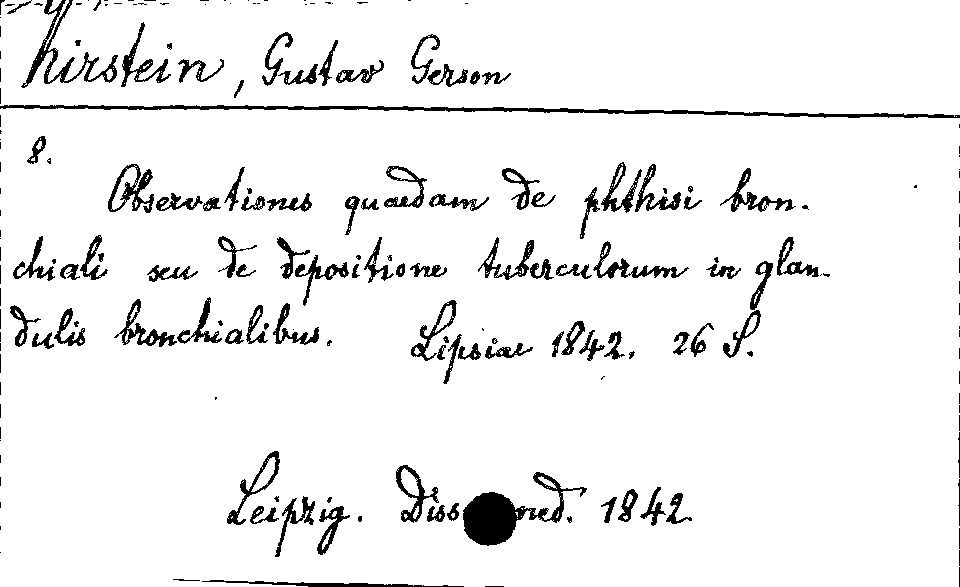 Kirstein, Gustav Gerson
8.
Observationes quaedam de phthisi bron-
chiali seu de depositione tuberculorum in glan-
dulis bronchialibus. Lipsiae 1842. 26 S.
Leipzig. Diss. med. 1842